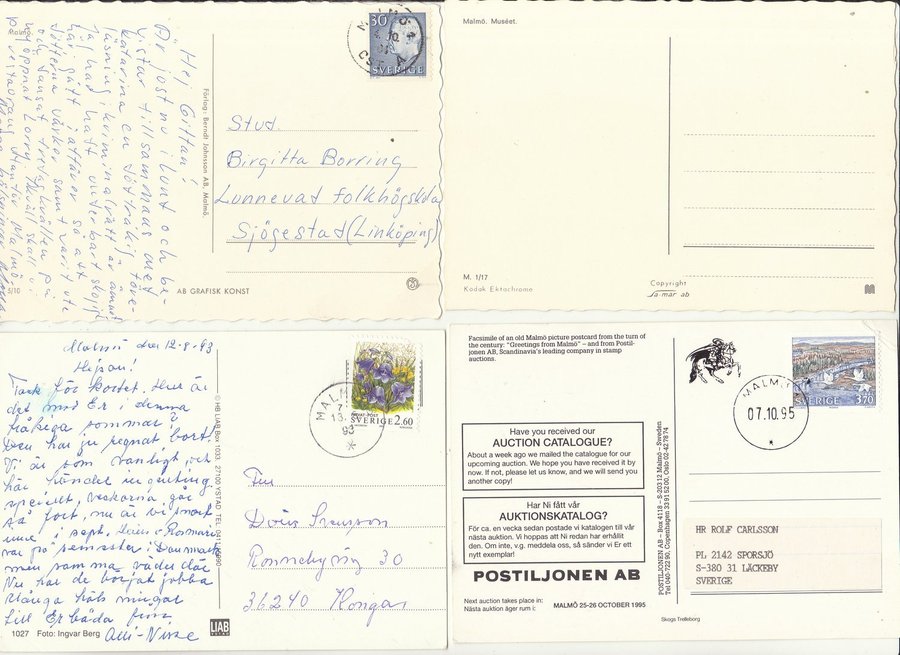 Malmö.
Hej Gittan!
Är just nu i Lund och be-
vistar tillsammans med
Katarina en
läsning i kriminalrätt är ännu
Jag hade hatt underbart skojigt
här gått jättöver så att
fötterna värker samt varit ute
och dansat tredje kvällen på
nyöppnat Lorry. Ikväll skall vi
på restaurang i Malmö
5/10
Förlag: Berndt Johnsson AB, Malmö.
AB GRAFISK KONST
30
SVERIGE
MALMÖ
Stud.
Birgitta Borring
Lunnevad folkhögskola
Sjögestad (Linköping)
Malmö. Muséet.
M. 1/17
Kodak Ektachrome
Copyright
sa-mär ab
Malmö den 12-8-93
Hejsan!
Tack för kortet. Hur är
det med Er i denna
tråkiga sommar?
Den har ju regnat bort.
Vi är som vanligt, och
här händer ingenting
speciellt, veckorna går
så fort, nu är vi snart
inne i sept.
var på semester i Danmark
men samma väder där
Nu har de börjat jobba
Många hälsningar
till Er båda från
Alli-Nisse
1027 Foto: Ingvar Berg
LIAB
© HB LIAB Box 1033, 27100 YSTAD
MALMÖ
93
SVERIGE 2.60
Fru
Doris Svensson
Ronnebyväg 30
36240 Konga
Facsimile of an old Malmö picture postcard from the turn of
the century: "Greetings from Malmö" – and from Postil-
jonen AB, Scandinavia's leading company in stamp
auctions.
Have you received our
AUCTION CATALOGUE?
About a week ago we mailed the catalogue for our
upcoming auction. We hope you have received it by
now. If not, please let us know, and we will send you
another copy!
Har Ni fått vår
AUKTIONSKATALOG?
För ca. en vecka sedan postade vi katalogen till vår
nästa auktion. Vi hoppas att Ni redan har erhållit
den. Om inte, v.g. meddela oss, så sänder vi Er ett
nytt exemplar!
POSTILJONEN AB
Next auction takes place in:
Nästa auktion äger rum i:
MALMÖ 25-26 OCTOBER 1995
POSTILJONEN AB – Box 4118 – S-203 12 Malmö – Sweden
Tel 040-722 90, Copenhagen 33 91 52 00, Oslo 02-42 78 74
MALMÖ
07.10.95
SVERIGE 370
HR ROLF CARLSSON
PL 2142 SPORSJÖ
S-380 31 LÄCKEBY
SVERIGE
Skogs Trelleborg